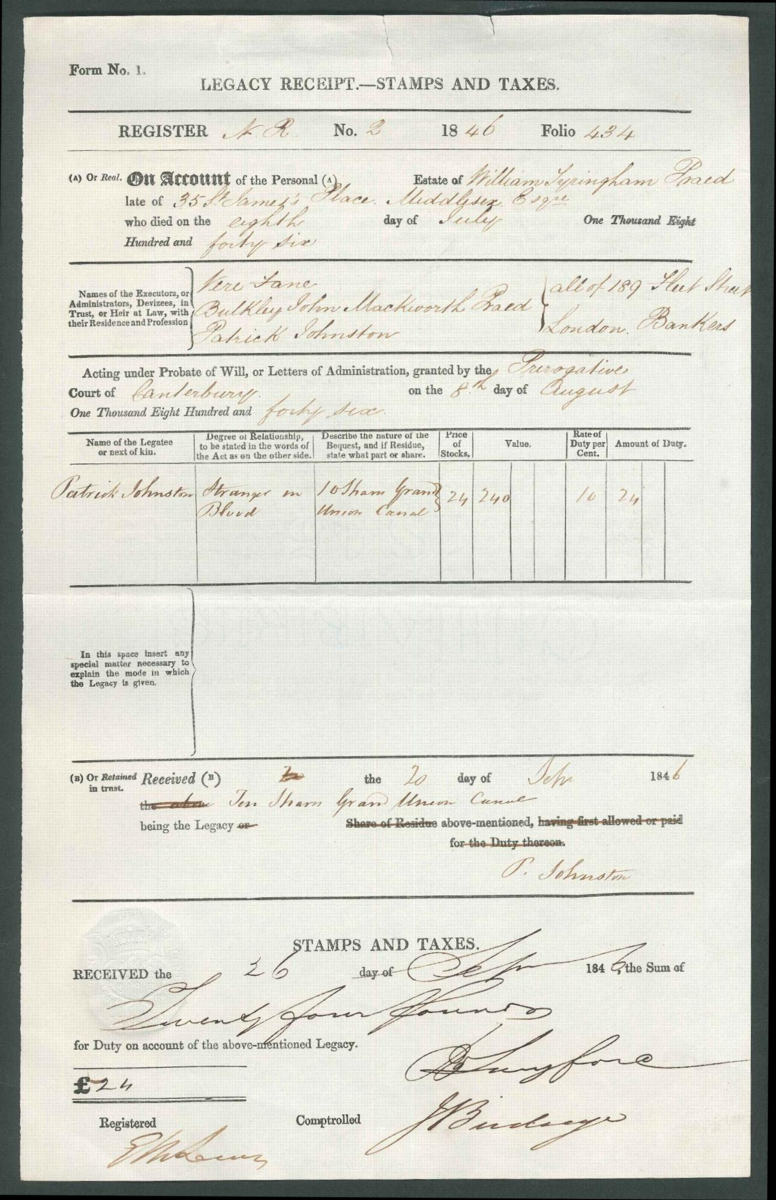 Form No. 1.
LEGACY RECEIPT.—STAMPS AND TAXES.
REGISTER N. R. No. 2 1846 Folio 434
(A) Or Real. On Account of the Personal (A) Estate of William Tyringham Praed
late of 35 St James's Place. Middlesex Esqre
who died on the eighth day of July One Thousand Eight
Hundred and forty six
Names of the Executors, or
Administrators, Devizees, in
Trust, or Heir at Law, with
their Residence and Profession
Vere Fane
Bulkley John Mackworth Praed
Patrick Johnston
all of 189 Fleet Street
London. Bankers
Acting under Probate of Will, or Letters of Administration, granted by the Prerogative
Court of Canterbury. on the 8th day of August
One Thousand Eight Hundred and forty six
Name of the Legatee
or next of kin.
Degree of Relationship,
to be stated in the words of
the Act as on the other side.
Describe the nature of the
Bequest, and if Residue,
state what part or share.
Price
of
Stocks.
Value.
Rate of
Duty per
Cent.
Amount of Duty.
Patrick Johnston Stranger in 10 Shares Grand 24 240 10 24
Blood Union Canal
In this space insert any
special matter necessary to
explain the mode in which
the Legacy is given.
(B) Or Retained
in trust.
Received (B) the 20 day of Sepr 1846
the above Ten Shares Grand Union Canal
being the Legacy or Share of Residue above-mentioned, having first allowed or paid
for the Duty thereon.
P. Johnston
STAMPS AND TAXES.
RECEIVED the 26 day of Sepr 1846, the Sum of
Twenty four Pounds
for Duty on account of the above-mentioned Legacy.
£24
Registered Comptrolled